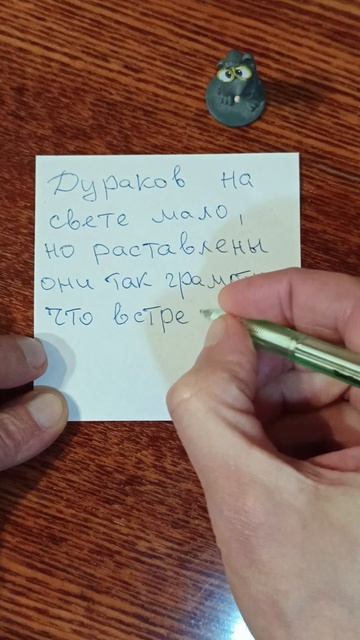 Дураков на
свете мало,
но раставлены
они так грамотн
что встре